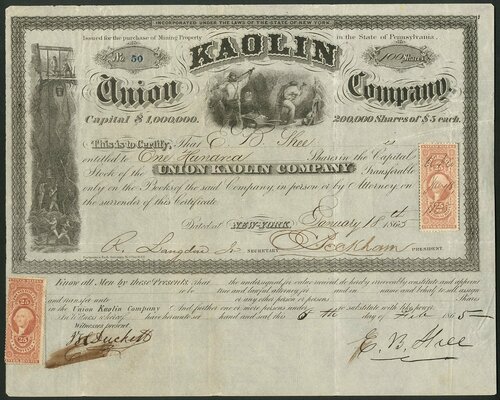 INCORPORATED UNDER THE LAWS OF THE STATE OF NEW YORK
Issued for the purchase of Mining Property in the State of Pennsylvania.
No 50 KAOLIN 100 Shares
Union Company.
Capital $1,000,000. 200,000 Shares of $5 each.
This is to Certify, That E. B. is
entitled to One Hundred Shares in the Capital
Stock of the UNION KAOLIN COMPANY Transferable
only on the Books of the said Company, in person or by Attorney on
the surrender of this Certificate
Dated at NEW-YORK January 18th 1865
R. Langdon Jr. SECRETARY. Peckham PRESIDENT.
Know all Men by these Presents, That the undersigned for value received, do hereby constitute and appoint
to be true and lawful attorney for and in name and behalf to sell assign
and transfer unto or any other person or persons Shares
in the Union Kaolin Company And further one or more persons under to substitute with like power.
In Witness whereof, have hereunto set hand and seal this 8th day of Feb 1865
Witnesses present
25 25
E. B.